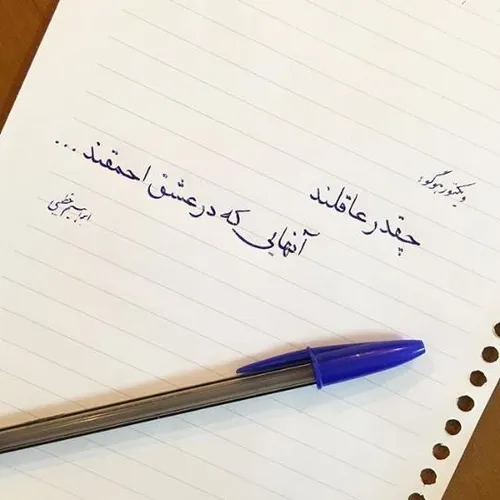 ویکتور هوگو:
چقدر عاقلند
آنهایی که در عشق احمقند ...